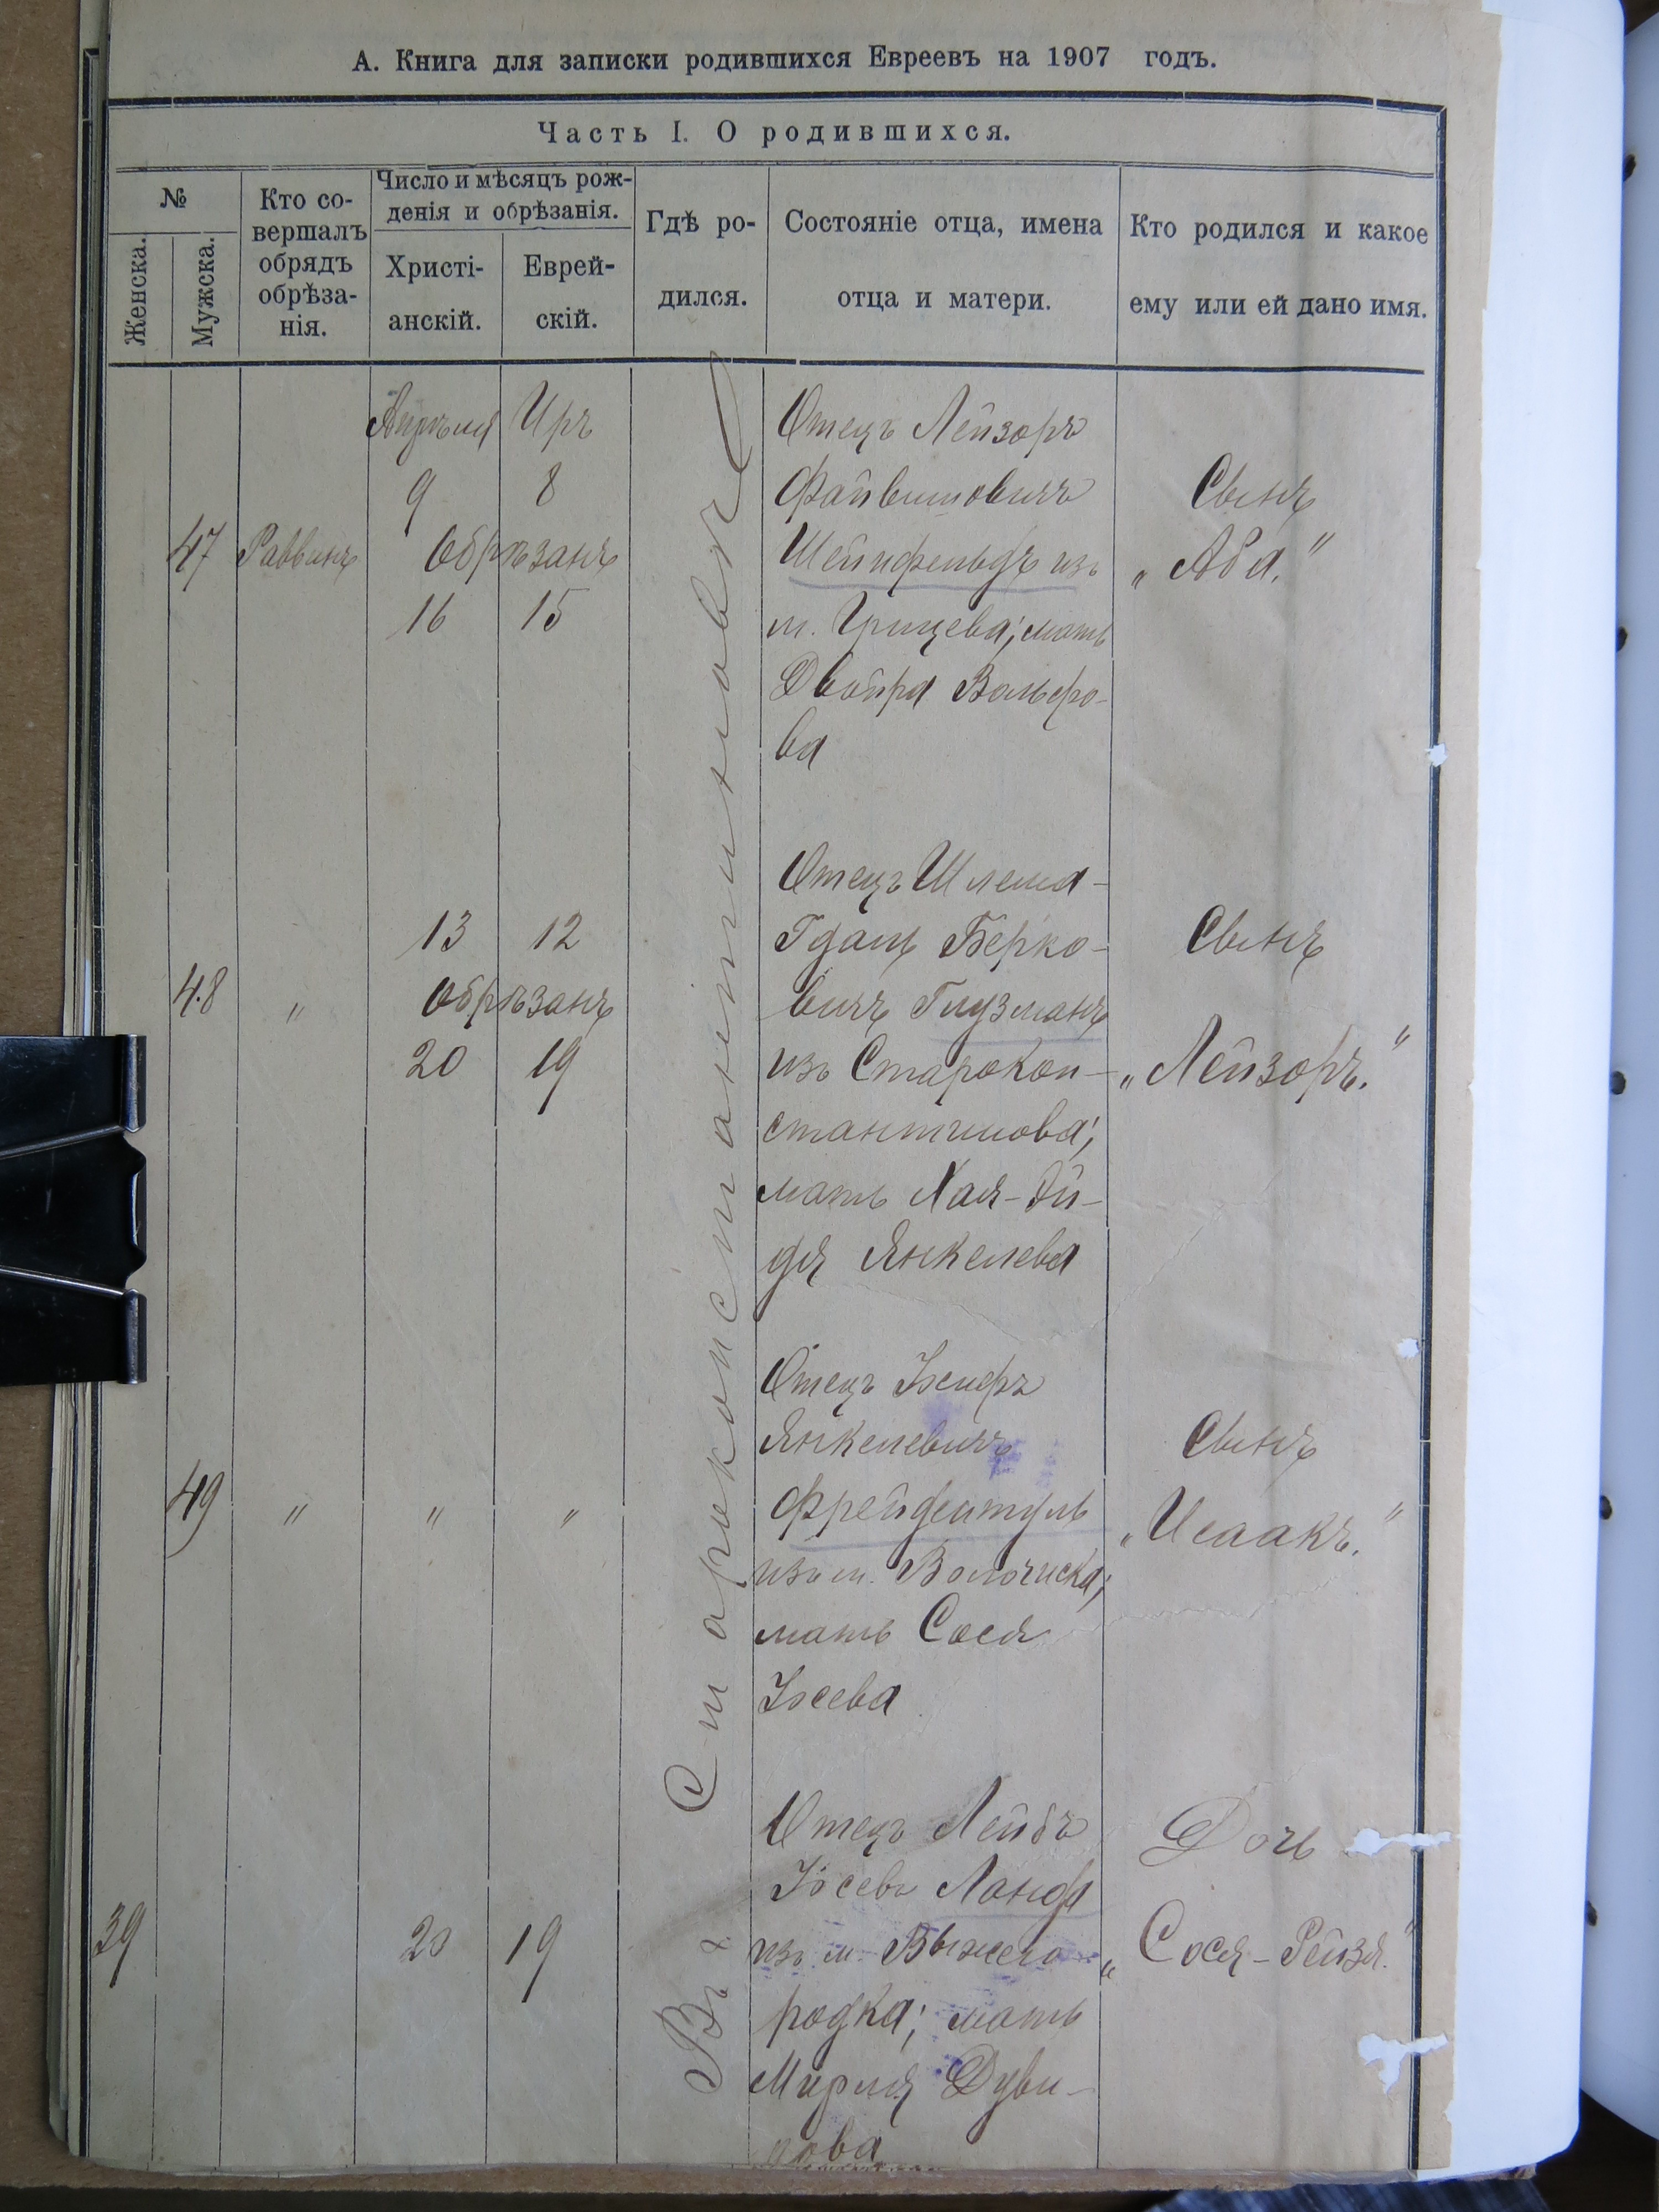 А. Книга для записки родившихся Евреевъ на 1907 годъ.
Часть I. О родившихся.
№
Женска.
Мужска.
Кто со-
вершалъ
обрядъ
обрѣза-
нія.
Число и мѣсяцъ рож-
денія и обрѣзанія.
Христі-
анскій.
Еврей-
скій.
Гдѣ ро-
дился.
Состояніе отца, имена
отца и матери.
Кто родился и какое
ему или ей дано имя.
Въ г. Староконстантиновѣ
47
Раввинъ
Апрѣля Иръ
9 8
Обрѣзанъ
16 15
Отецъ Лейзоръ
Файвишовичъ
Шейнфельдъ изъ
м. Грицева; мать
Двойра Вольфо-
ва
Сынъ
„Аба."
48
"
13 12
Обрѣзанъ
20 19
Отецъ Шлема-
Гдаль Берко-
вичъ Глузманъ
изъ Старокон-
стантинова;
мать Хая-Эй-
дя Янкелева
Сынъ
„Лейзоръ."
49
"
" "
Отецъ Іосифъ
Янкелевичъ
Фрейдентуль
изъ м. Волочиска;
мать Сося
Іосева
Сынъ
„Исаакъ."
39
20 19
Отецъ Лейбъ
Іосевъ Ланда
изъ м. Выжего-
родка; мать
Мирля Дуви-
дова
Дочь
„Сося-Рейзя."